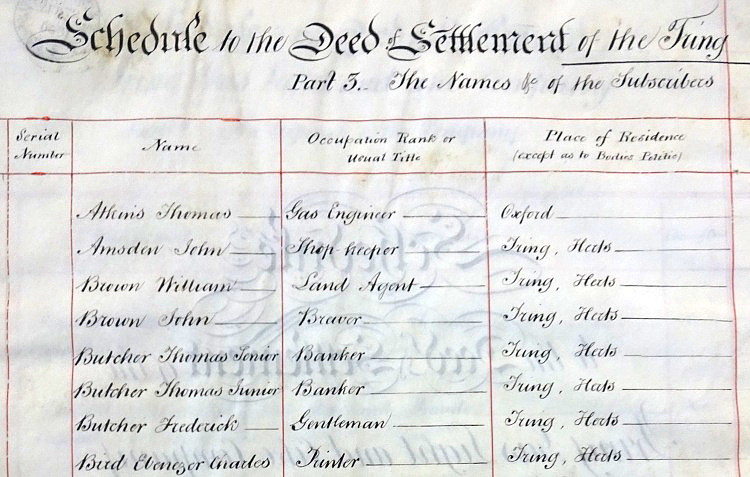 Schedule to the Deed of Settlement of the Tring
Part 3. The Names &c of the Subscribers
Serial Number Name Occupation Rank or Usual Title Place of Residence (except as to Bodies Politic)
Atkins Thomas Gas Engineer Oxford
Amsden John Shop-keeper Tring, Herts
Brown William Land Agent Tring, Herts
Brown John Brewer Tring, Herts
Butcher Thomas Senior Banker Tring, Herts
Butcher Thomas Junior Banker Tring, Herts
Butcher Frederick Gentleman Tring, Herts
Bird Ebenezer Charles Printer Tring, Herts